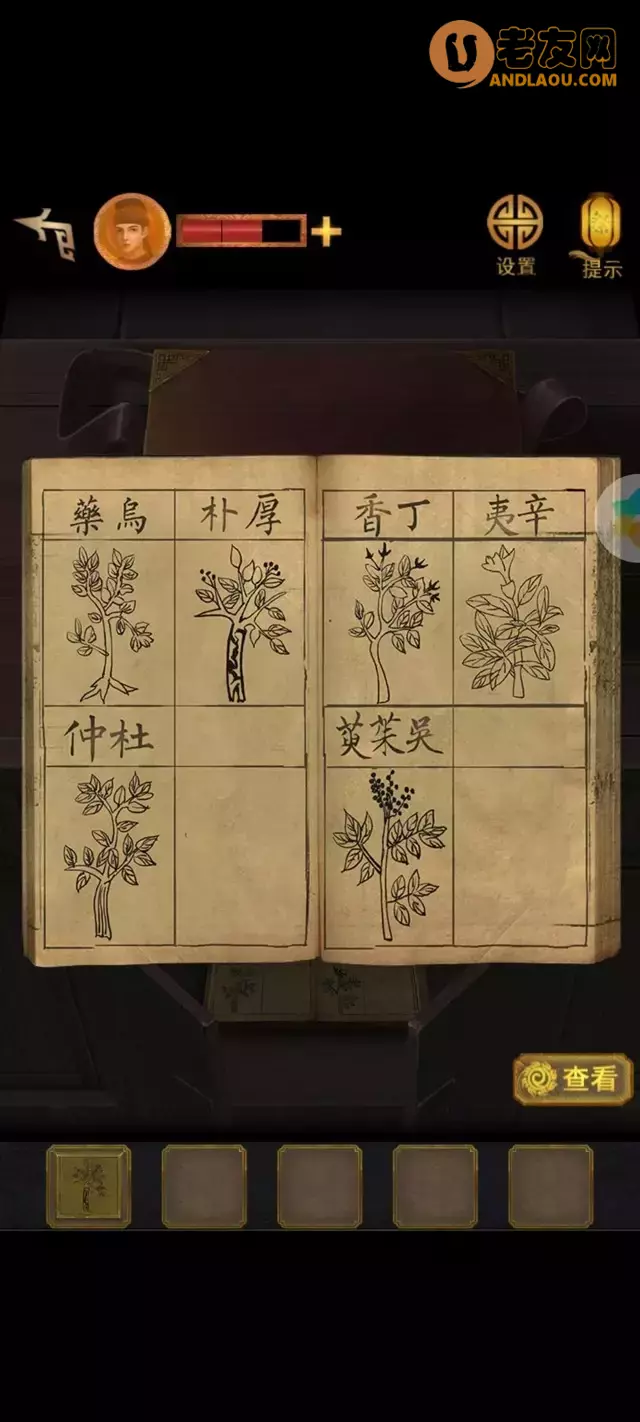 老友网
ANDLAOU.COM
设置
提示
藥烏
朴厚
香丁
夷辛
仲杜
萸茱吴
查看